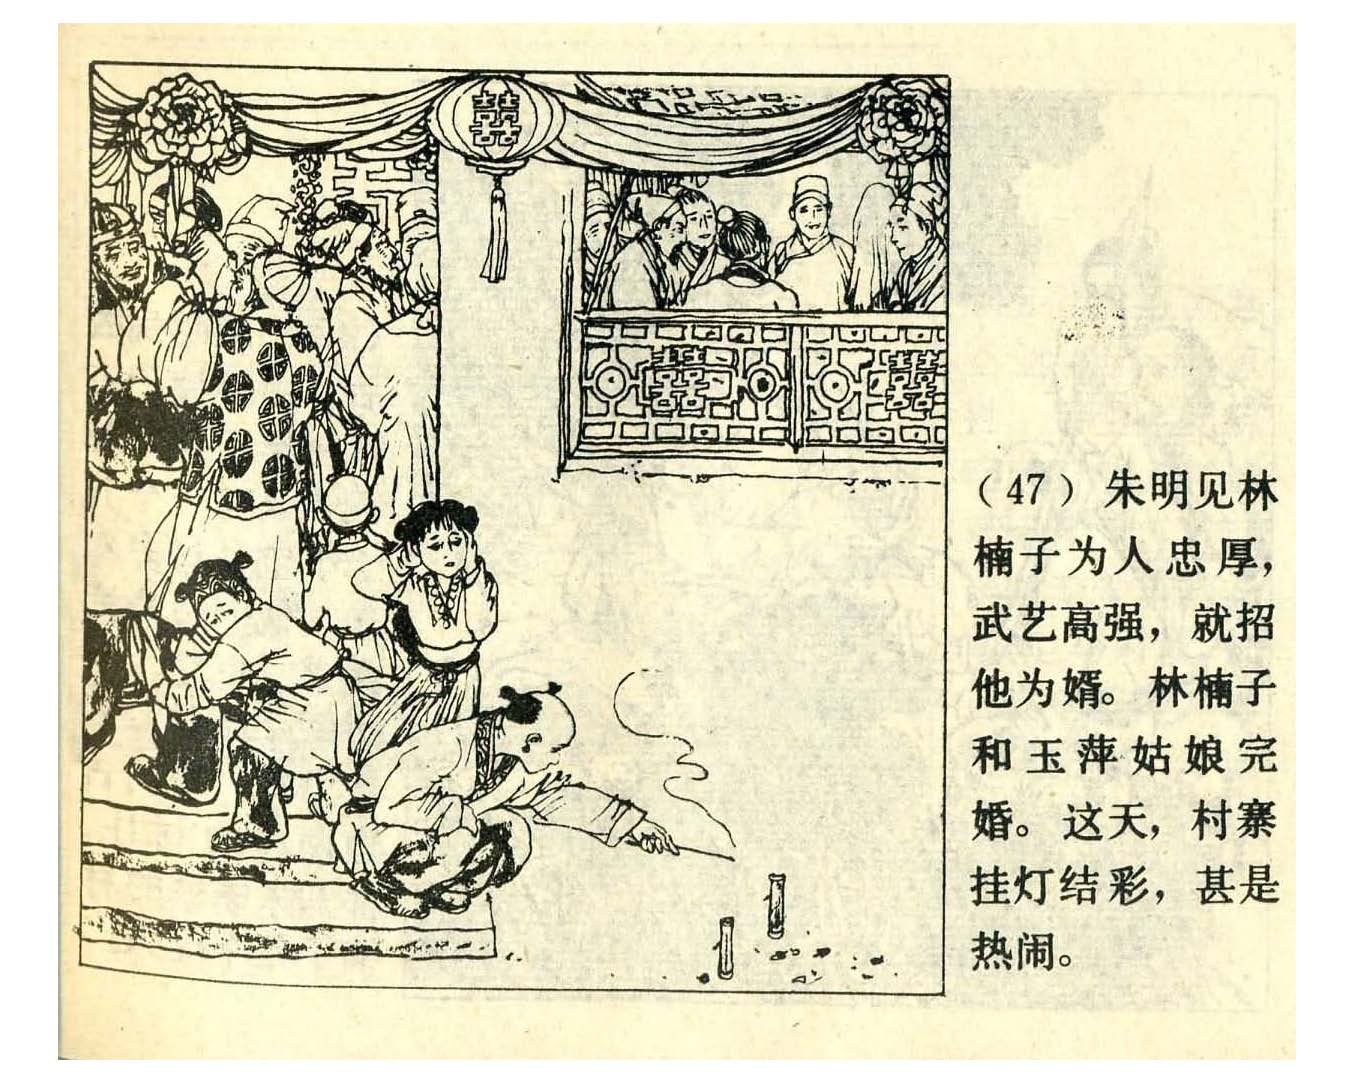 囍
（47）朱明见林
楠子为人忠厚，
武艺高强，就招
他为婿。林楠子
和玉萍姑娘完
婚。这天，村寨
挂灯结彩，甚是
热闹。